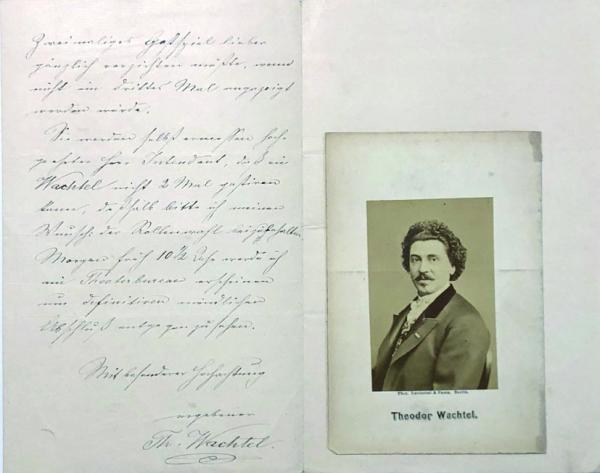 Zweimaliges Gastspiel lieber
gänzlich verzichten müßte, wenn
nicht ein drittes Mal angezeigt
werden würde.
Sie werden selbst ermessen hoch-
geehrter Herr Intendant, daß ein
Wachtel nicht 2 Mal gastiren
kann, deshalb bitte ich meinen
Wunsch: der Rollenwahl
Morgen früh 10½ Uhr werde ich
im Theaterbureau erscheinen
um definitiven mündlichen
Abschluß entgegen zu sehen.
Mit besonderer Hochachtung
ergebener
Th. Wachtel.
Berlin.
Theodor Wachtel.